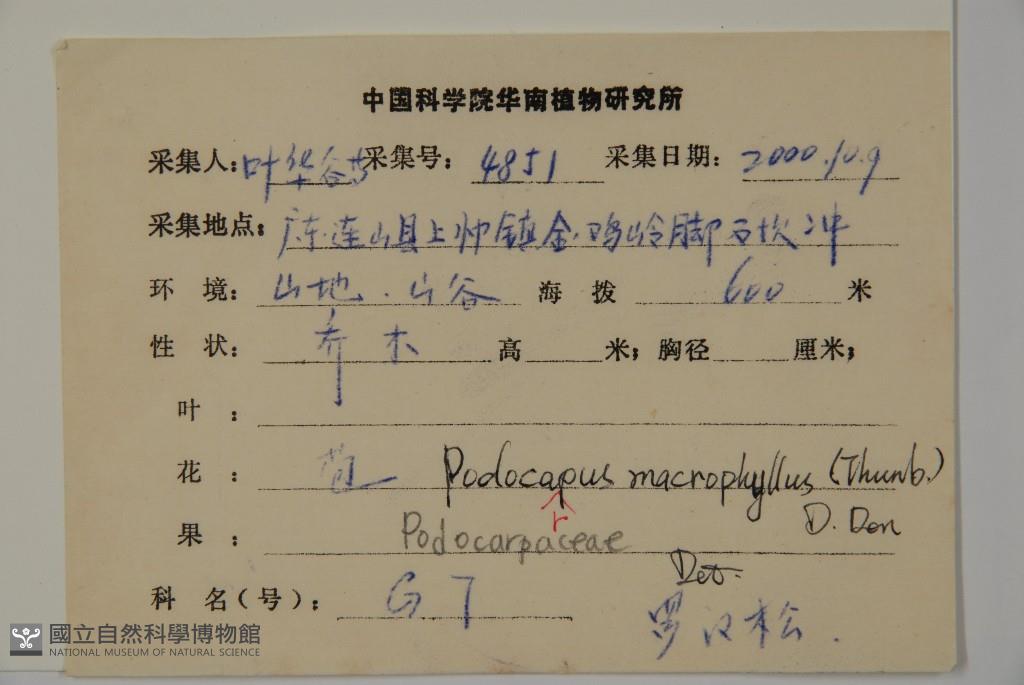 中国科学院华南植物研究所
采集人：叶华谷等 采集号：4851 采集日期：2000.10.9
采集地点：广东连山县上帅镇金鸡岭脚石坎冲
环 境：山地．山谷 海 拨 600 米
性 状：乔木 高 米；胸径 厘米；
叶：
花： Podocapus macrophyllus (Thunb.)
r
D. Don
果： Podocarpaceae
Det.
科 名(号)：G7
罗汉松．
國立自然科學博物館
NATIONAL MUSEUM OF NATURAL SCIENCE